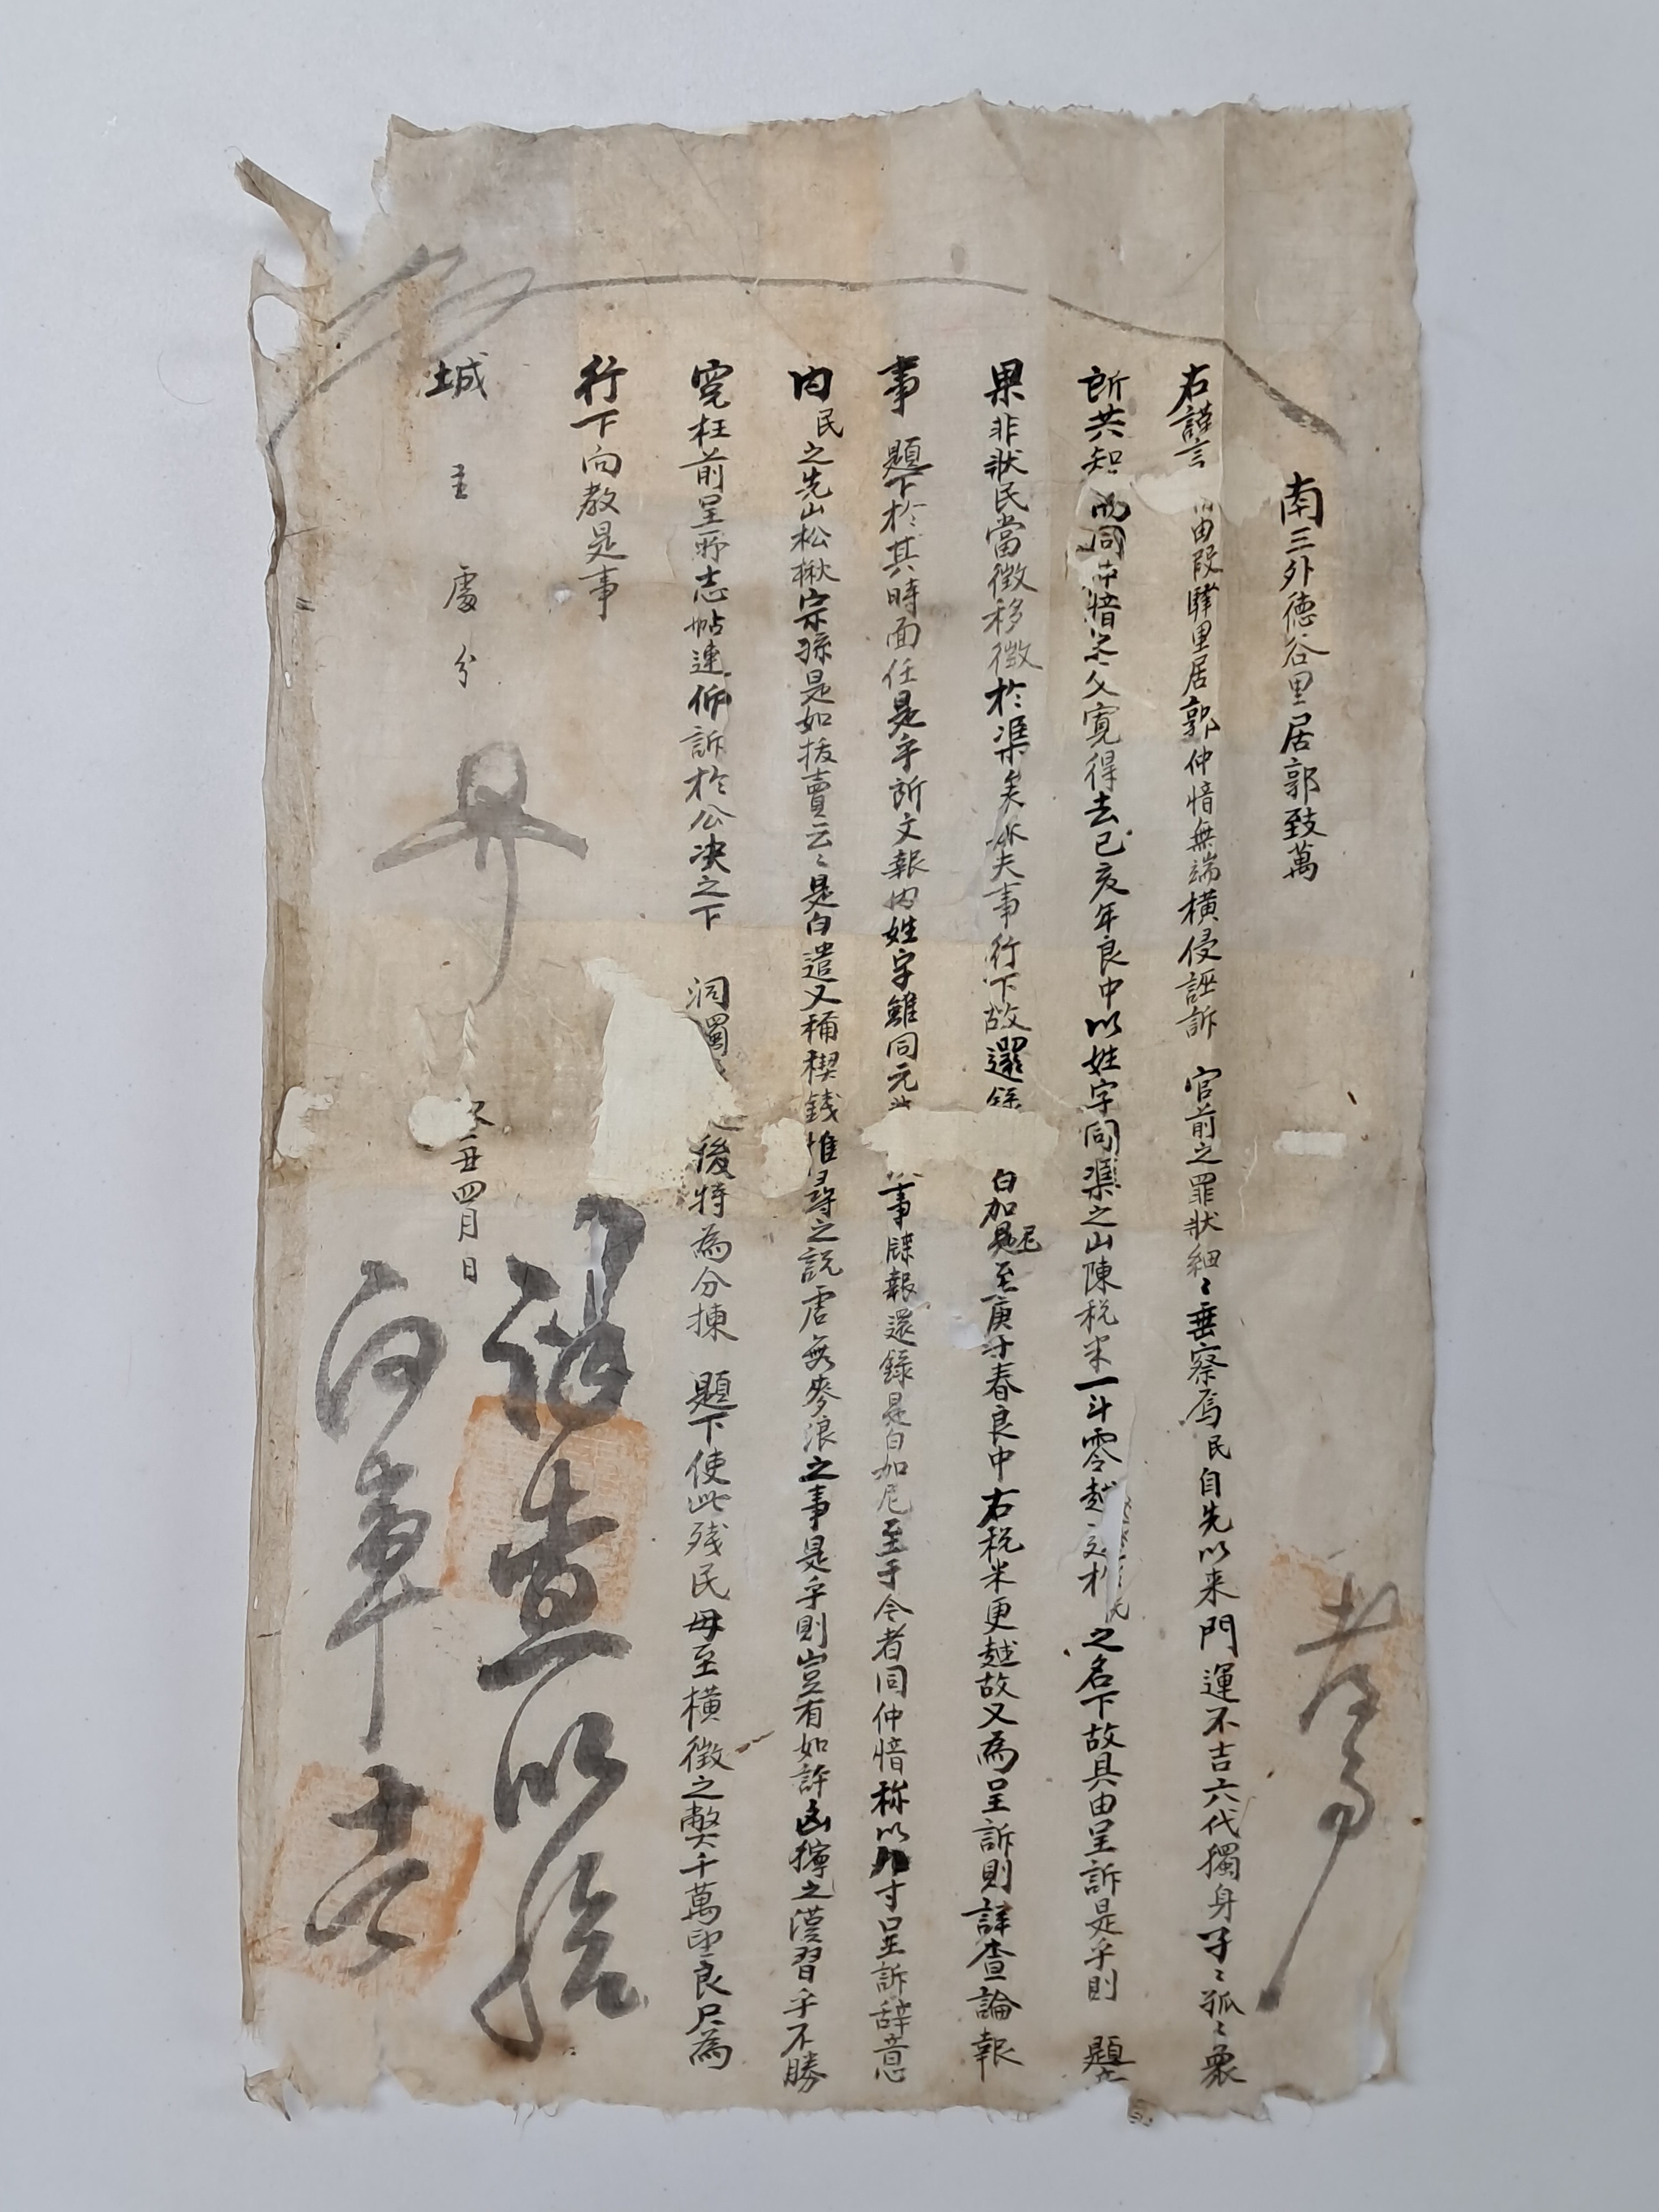 南三外德谷里居郭致萬
右謹言 由段驛里居郭仲愔無端橫侵誣訴 官前之罪狀細〻垂察焉民自先以来門運不吉六代獨身孑〻孤〻衆
所共知 同仲愔 父寬得去己亥年良中以姓字同渠之山陳税米一斗零越 之名下故具由呈訴是乎則 題
果非狀民當徵移徵於渠矣 夫事行下故還録 白加尼 至庚子春良中右税米更越故又為呈訴則詳查論報
事 題下於其時面任是乎所文報内姓字雖同元 事牒報還錄是白加尼至于今者同仲愔称以 寸呈訴辞意
内民之先山松楸宗孫是如拔賣云〻是白遣又稱稧錢推尋之説虛無麥浪之事是乎則豈有如許凶獰之漢習乎不勝
寃枉前呈所志帖連仰訴於公决之下 洞燭 後特為分揀 題下使此残民毋至橫徵之弊千萬望良只為
行下向教是事
城主處分
丑四月日
查以給
向事